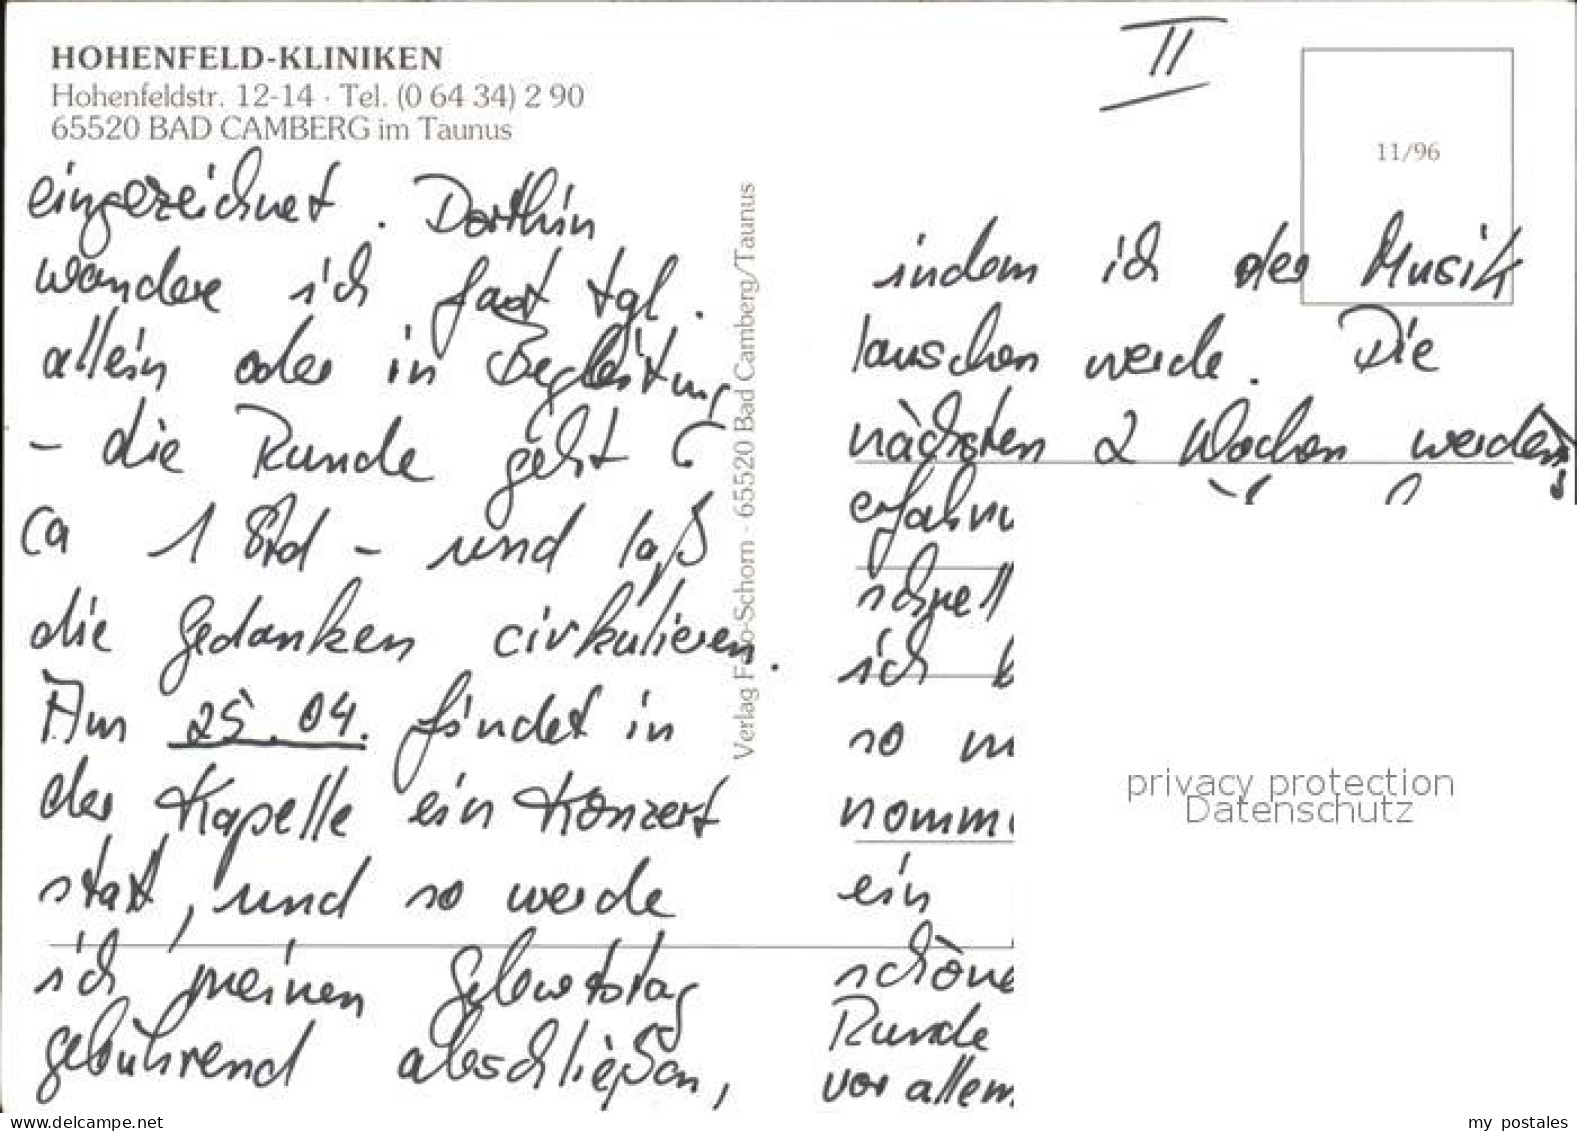 HOHENFELD-KLINIKEN
Hohenfeldstr. 12-14 · Tel. (0 64 34) 2 90
65520 BAD CAMBERG im Taunus
II
11/96
eingezeichnet. Dorthin
wandere ich fast tgl.
allein oder in Begleitung
- die Runde geht
ca 1 Std - und laß
die Gedanken cirkulieren.
Am 25.04. findet in
der Kapelle ein Konzert
statt, und so werde
ich meinen Geburtstag
gebührend abschließen,
Verlag Foto-Schorn - 65520 Bad Camberg/Taunus
indem ich der Musik
lauschen werde. Die
nächsten 2 Wochen werden
schnell
ich
so
ein
schöne
Runde
vor allem
privacy protection
Datenschutz
delcampe.net
my postales